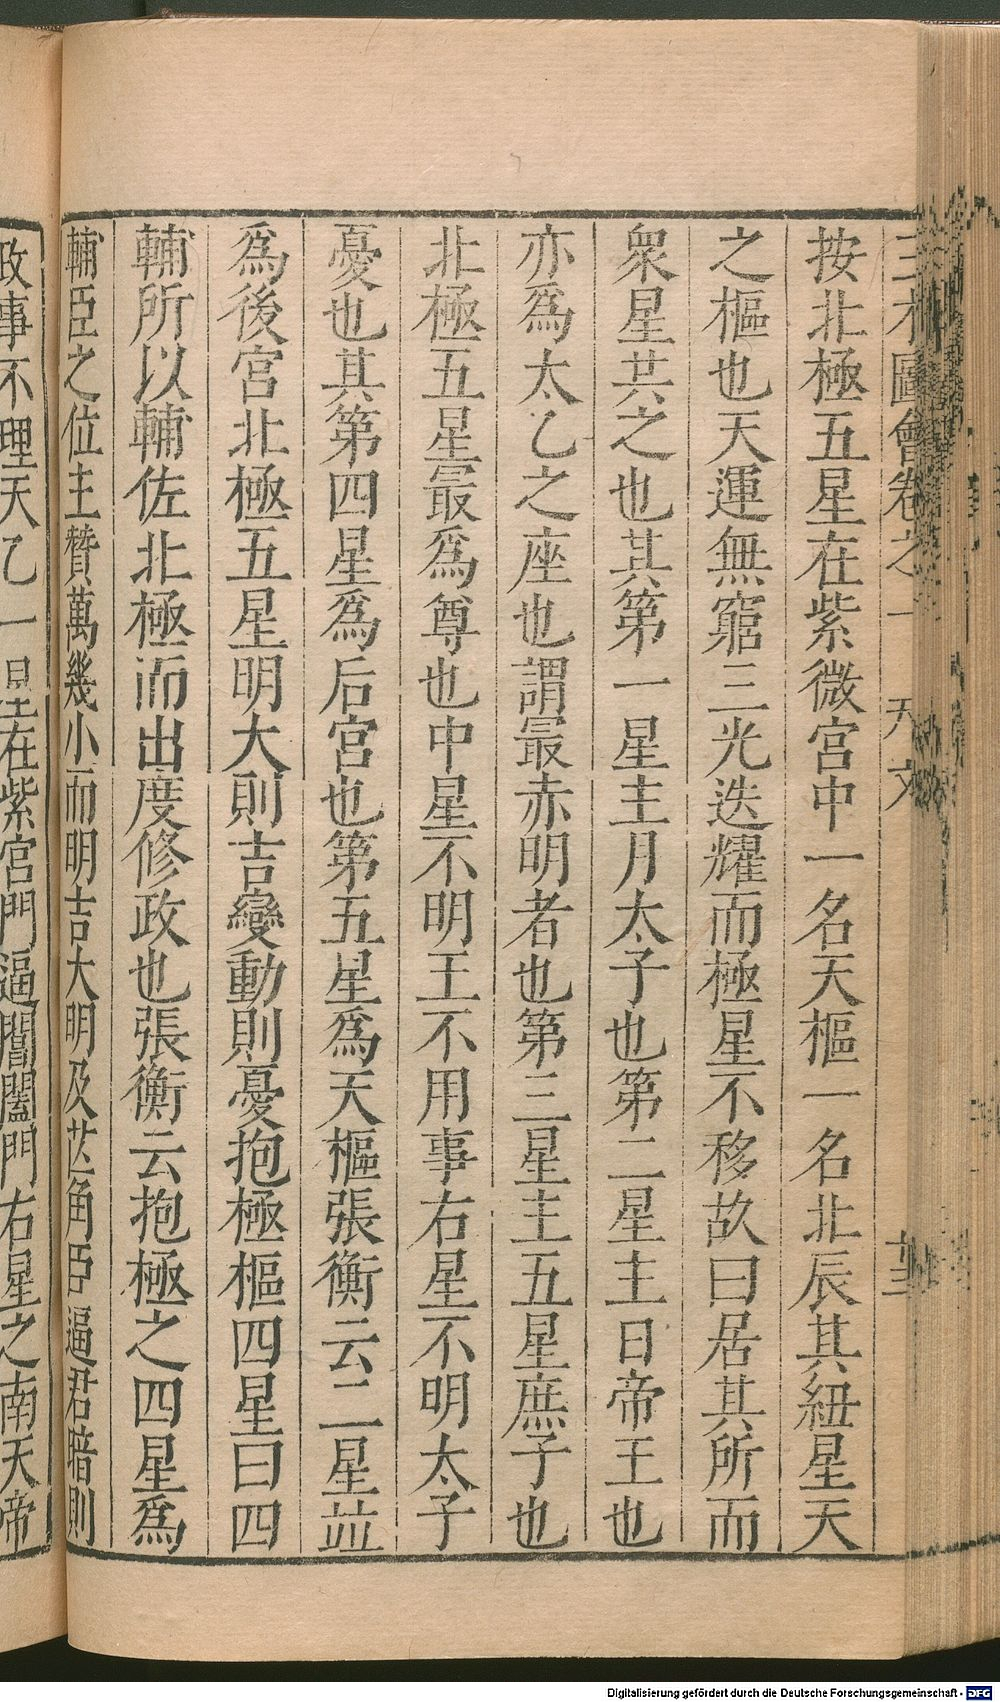 三才圖會卷之一 天文
按北極五星在紫微宮中一名天樞一名北辰其紐星天
之樞也天運無窮三光迭耀而極星不移故曰居其所而
衆星共之也其第一星主月太子也第二星主日帝王也
亦爲太乙之座也謂最赤明者也第三星主五星庶子也
北極五星最爲尊也中星不明王不用事右星不明太子
憂也其第四星爲后宮也第五星爲天樞張衡云二星並
爲後宮北極五星明大則吉變動則憂抱極樞四星曰四
輔所以輔佐北極而出度修政也張衡云抱極之四星爲
輔臣之位主贊萬幾小而明吉大明及芒角臣逼君暗則
政事不理天乙一星在紫宮門逼閶闔門右星之南天帝
Digitalisierung gefördert durch die Deutsche Forschungsgemeinschaft - DFG